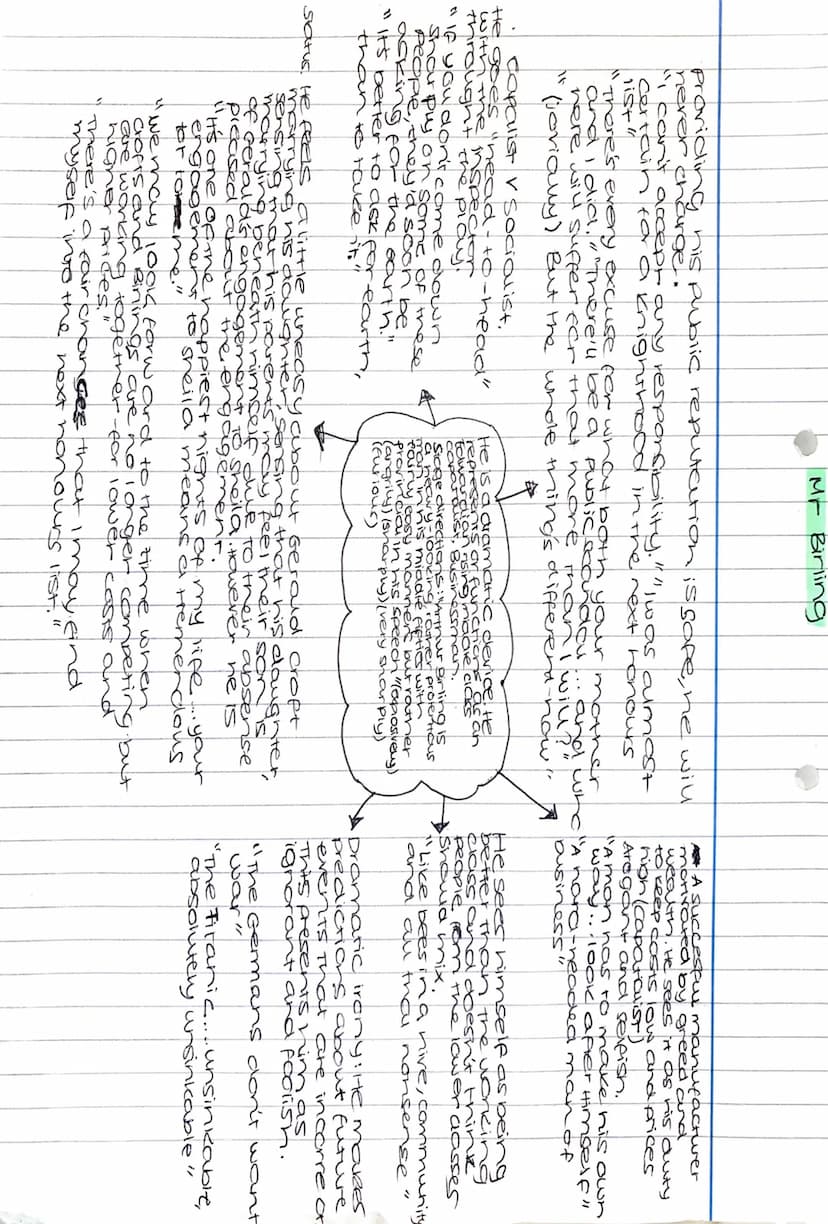 Mr Briling
Providing his public reputation is safe, he will
never change.
"I can't accept any responsibility." "I was almost
certain for a knighthood in the next honours
list"
"There's every excuse for what both your mother
and I did." "There'll be a public scandal... and who
here will suffer for that more than I will?"
"(jovially) But the whole thing's different now"
Capalist v Socialist.
He goes "head-to-head"
with the inspector
throught the play.
"If you don't come down
sharply on some of these
people, they'd soon be
asking for the earth."
"Its better to ask for earth,
than to take it"
He is a dramatic device. He
represents a functional clean
Edwardian, rising middle class
capatalist, businessman.
Stage directions: Arthur Birling is
a heavy-looking, rather protentious
man in his middle fifties with
fairly easy manners but rather
provincial in his speech" (explosively)
(angrily) (sharply) (very sharply)
(furious)
status. He feels a little uneasy about Gerald Croft
marrying his daughter, sensing that his daughter,
sensing that his parents may feel their son is
marrying beneath himself due to their absense
of Geralds engagement to Sheila. However he is
pleased about the engagement.
"It's one of the happiest nights of my life.... your
engagement to Sheila means a tremendous
lot to me."
"We may look forward to the time when
Crofts and Birlings are no longer competing but
are working together-for lower costs and
higher prices."
"There's a fair chances that I may find
myself into the next honours list."
A successful manufacturer
motivated by greed and
wealth. He sees it as his duty
to keep costs low and prices
high (capatalist)
Aregant and selfish.
"A man has to make his own
way... look after himself"
"A hard-headed man of
business"
He sees himself as being
better than the working
class and doesn't think
people from the lower classes
should mix.
"Like bees in a hive, community
and all that nonsense"
Dramatic irony: He makes
predictions about future
events that are incorrect
This presents him as
ignorant and foolish.
"The Germans don't want
war"
"The Titanic..... unsinkable,
absolutely unsinkable"